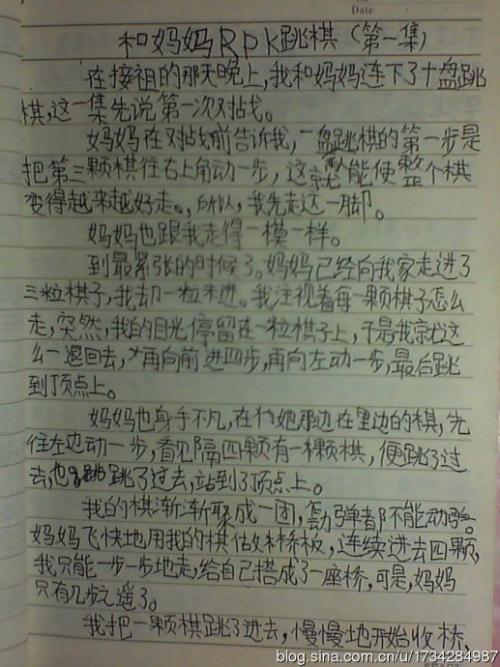 Date
和妈妈RPK跳棋(第一集)
在接祖的那天晚上,我和妈妈连下了十盘跳
棋,这一集先说第一次对战。
妈妈在对战前告诉我,一盘跳棋的第一步是
把第三颗棋往右上角动一步,这就能使整个棋
变得越来越好走。,所以,我先走这一脚。
妈妈也跟我走得一模一样。
到最紧张的时候了。妈妈已经向我家走进了
三粒棋子,我却一粒未进。我注视着每一颗棋子怎么
走,突然,我的目光停留在一粒棋子上,于是我就这
么一退回去,再向前进四步,再向左动一步,最后跳
到顶点上。
妈妈也身手不凡,在她那边在里边的棋,先
往左边动一步,看见隔四颗有一棵棋,便跳了过
去,也跳跳了过去,站到了顶点上。
我的棋渐渐聚成一团,动弹都不能动弹。
妈妈飞快地用我的棋做桥板,连续进去四颗,
我只能一步一步地走,给自己搭成了一座桥,可是,妈妈
只有几步之遥了。
我把一颗棋跳了进去,慢慢地开始收桥、
blog.sina.com.cn/u/1734284987